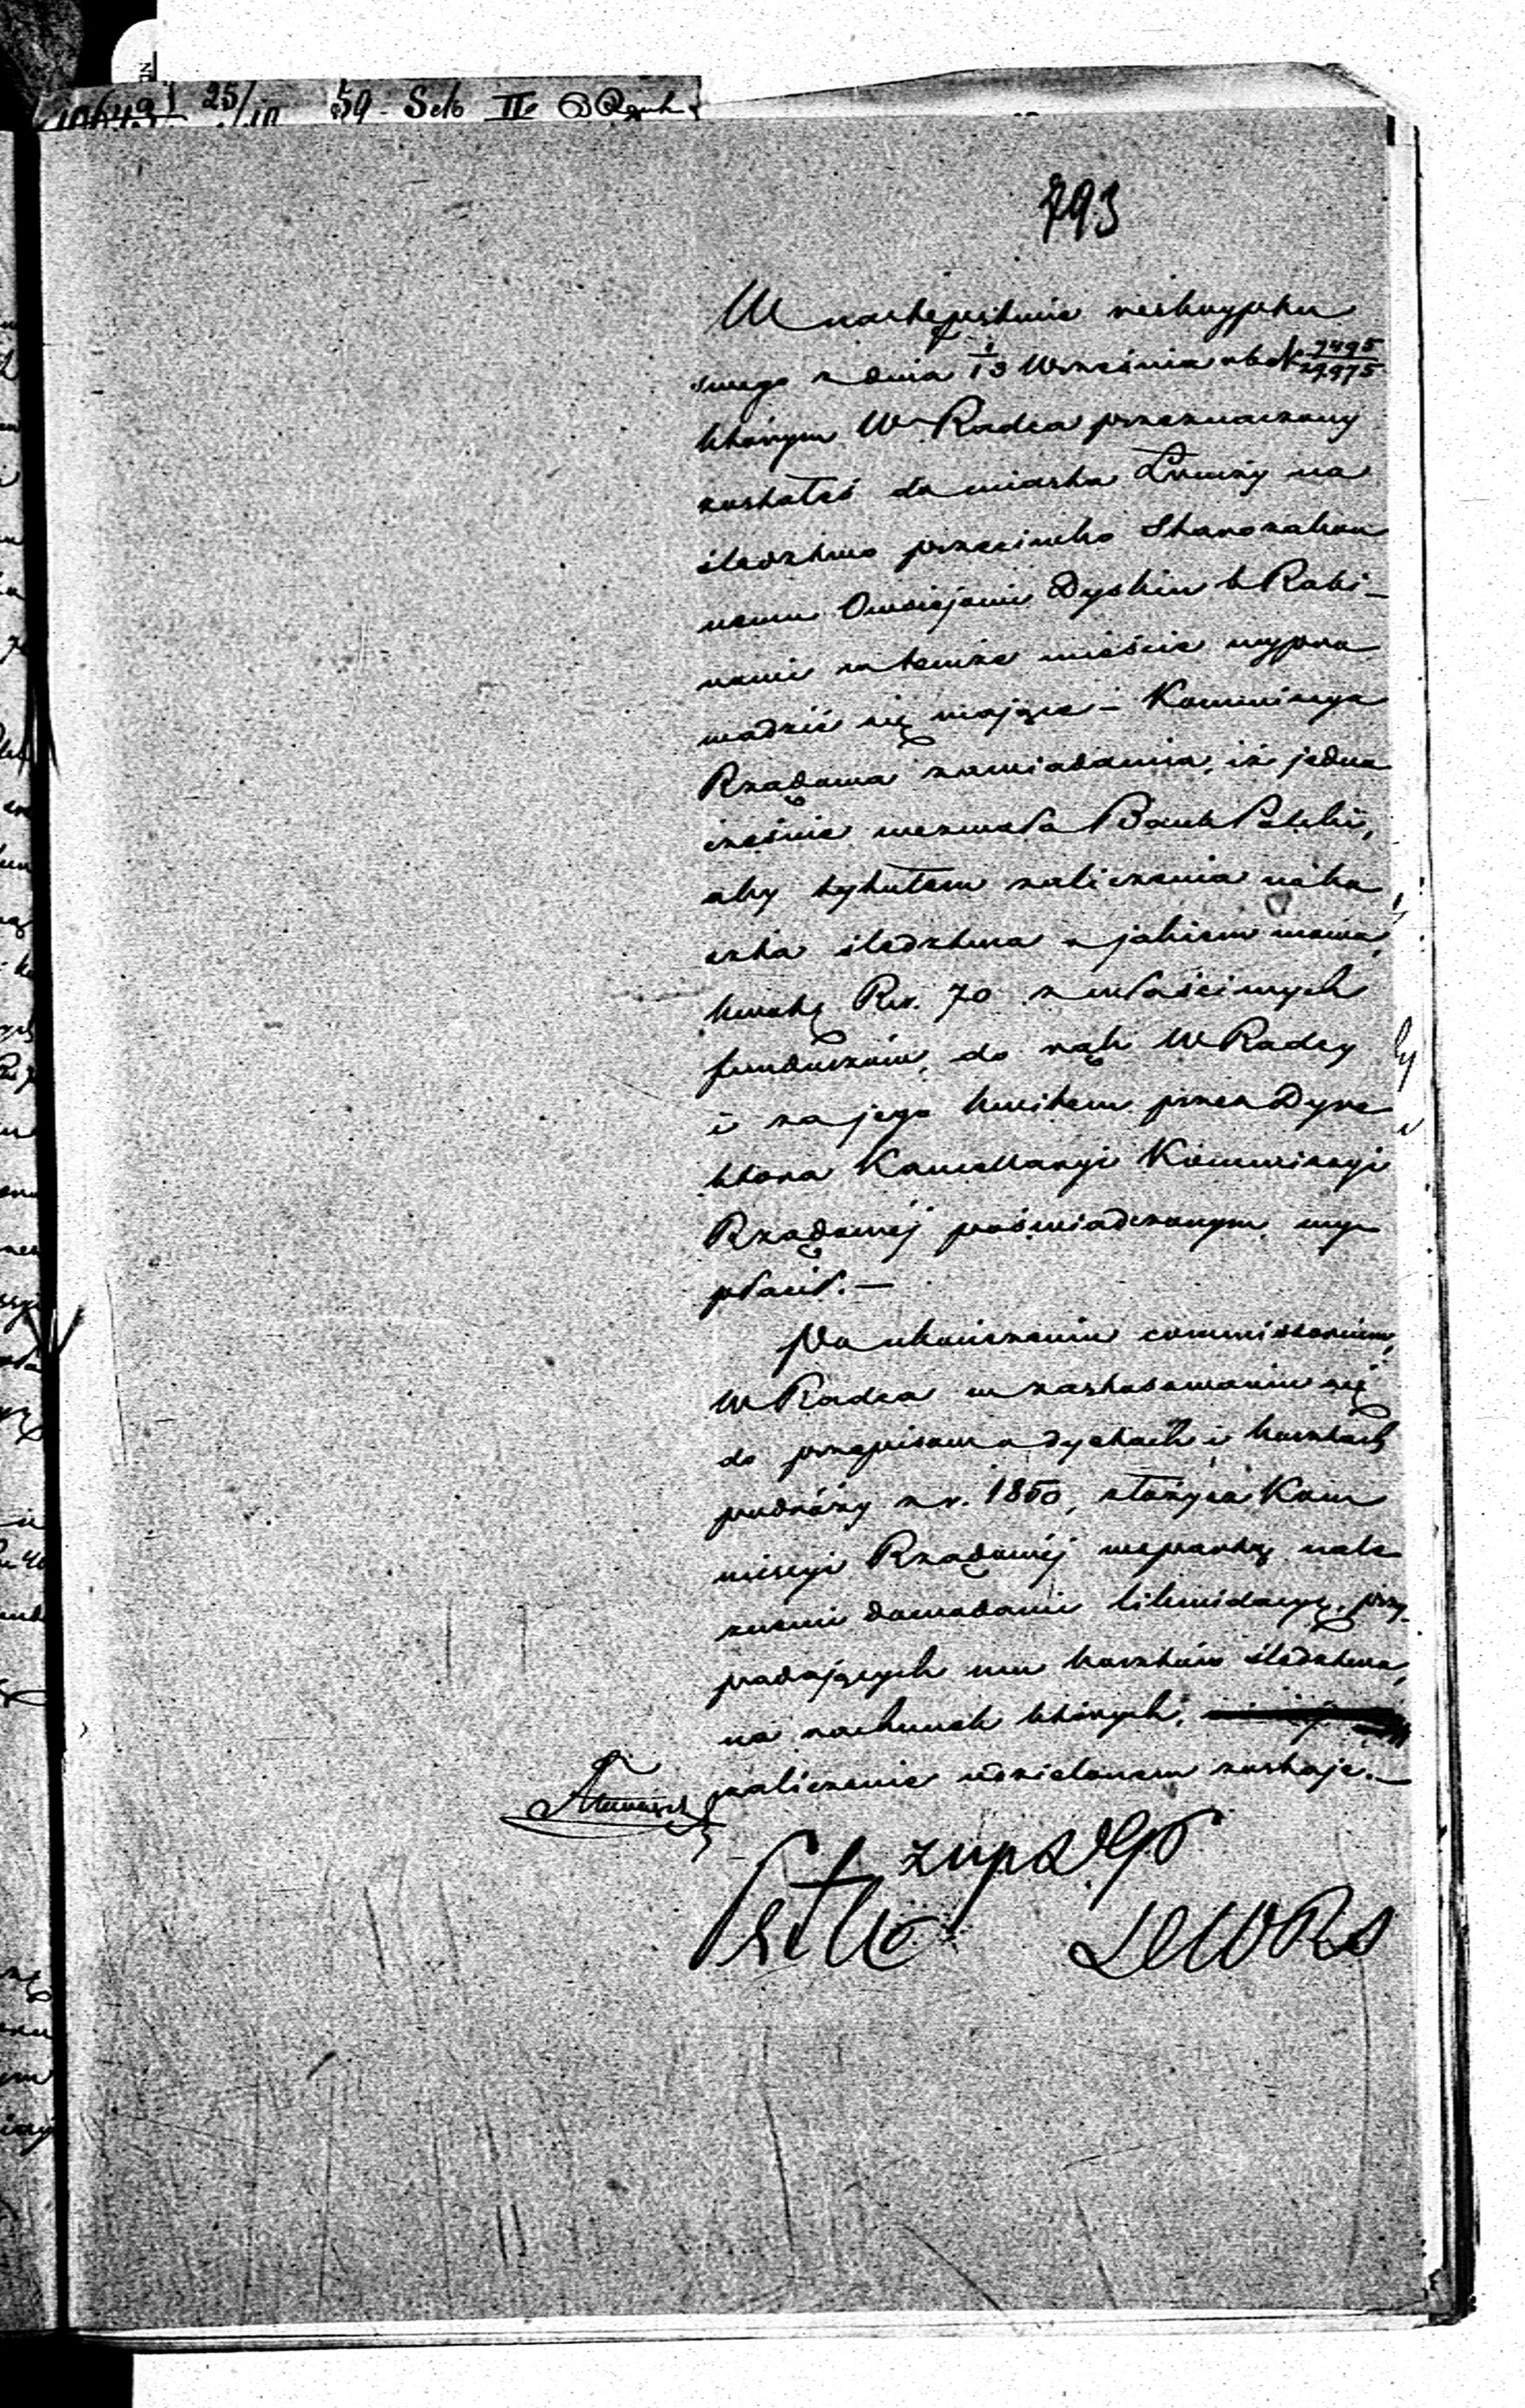 10643 25/10 59 Sek II
793
W następstwie reskryptu
swego z dnia 1/13 Września rb N 7495/29975
którym W Radca przeznaczony
zostałeś do miasta Łomży na
śledztwo przeciwko Starozakon
nemu Dyskin b Rabi-
nowi w temże mieście wypro
wadzić się mające – Kommissya
Rządowa zawiadamia, iż jedno
cześnie wezwała Bank Polski,
aby tytułem zaliczenia na ko
szta śledztwa o jakiem mowa,
kwotę Rsr. 70 z właściwych
funduszów, do rąk W Radcy
i za jego kwitem przez Dyre
ktora Kancellaryi Kommissyi
Rządowéj poświadczonym wy
płacił. –
Po ukończeniu commissorium,
W Radca w zastosowaniu się
do przepisów o dyetach i kosztach
podróży z r. 1850, złożysz Kom
missyi Rządowéj wespartą nale
żnemi dowodami likwidacyę, przy-
padających mu kosztów śledztwa,
na rachunek których,
zaliczenie udzielonem zostaje. –